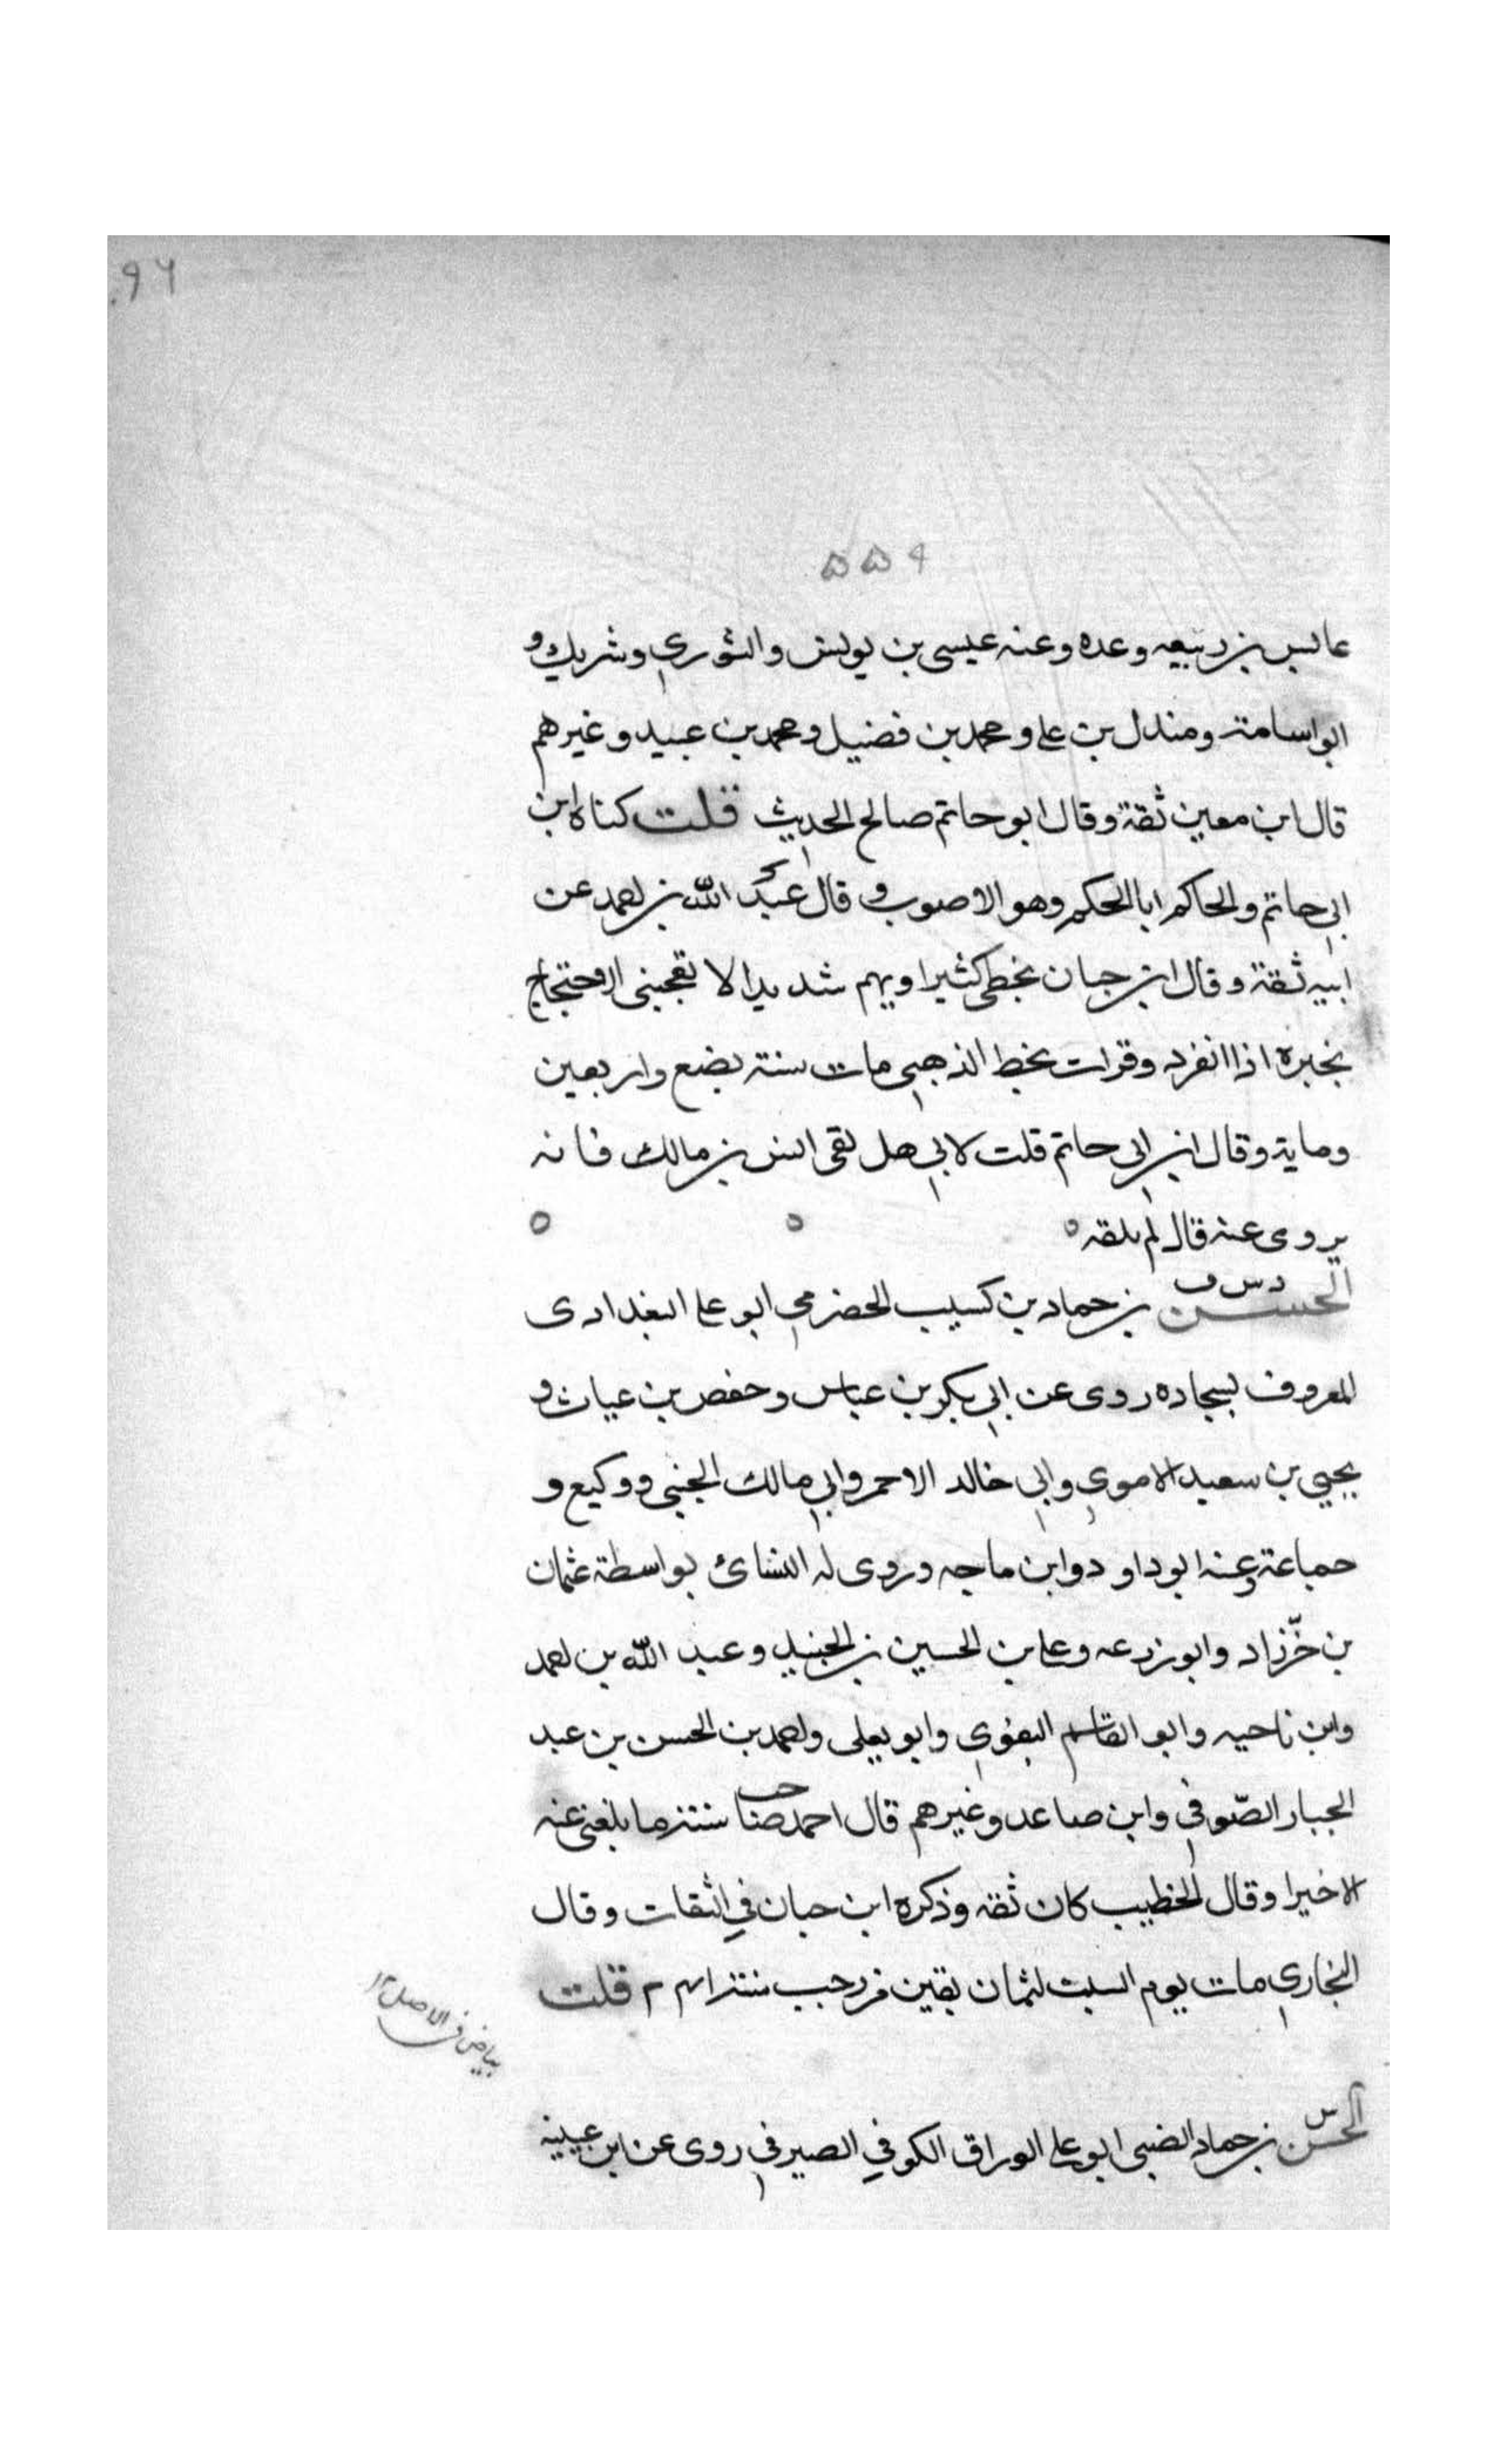 ٩٦
٥٥٩
عابس بن ربيعه وعده وعنه عيسى بن يونس والثوري وشريك و
ابو اسامة ومندل بن على ومحمد بن فضيل ومحمد بن عبيد وغيرهم
قال ابن معين ثقة وقال ابو حاتم صالح الحديث قلت كناه ابن
ابي حاتم والحاكم ابا الحكم وهو الاصوب وقال عبد الله بن احمد عن
ابيه ثقة وقال ابن حبان يخطى كثيرا ويهم شديدا لا تعجبنى الاحتجاج
بخبره اذا انفرد وقرات بخط الذهبي مات سنة بضع واربعين
وماية وقال ابن ابي حاتم قلت لابي هل لقى انس بن مالك فانه
يروى عنه قال لم يلقه
د س ق
الحسن بن حماد بن كسيب الحضرمي ابو على البغدادى
المعروف بسجاده روى عن ابي بكر بن عياش وحفص بن غياث و
يحيى بن سعيد الاموي وابي خالد الاحمر وابي مالك الجنبي ووكيع و
جماعة وعنه ابو داود وابن ماجه وروى له النسائ بواسطة عثمان
بن خرّزاد وابو زرعه وعلى بن الحسين بن الجنيد وعبد الله بن احمد
وابن ناجيه وابو القاسم البغوي وابو يعلى واحمد بن الحسن بن عبد
الجبار الصّوفي وابن صاعد وغيرهم قال احمد صاحب سنة ما بلغنى عنه
الا خيرا وقال الخطيب كان ثقه وذكره ابن حبان في الثقات وقال
البخاري مات يوم السبت لثمان بقين من رجب سنة ٢٤١ قلت
بياض فى الاصل ١٢
س
الحسن بن حماد الضبى ابو على الوراق الكوفي الصيرفي روى عن ابن عيينه